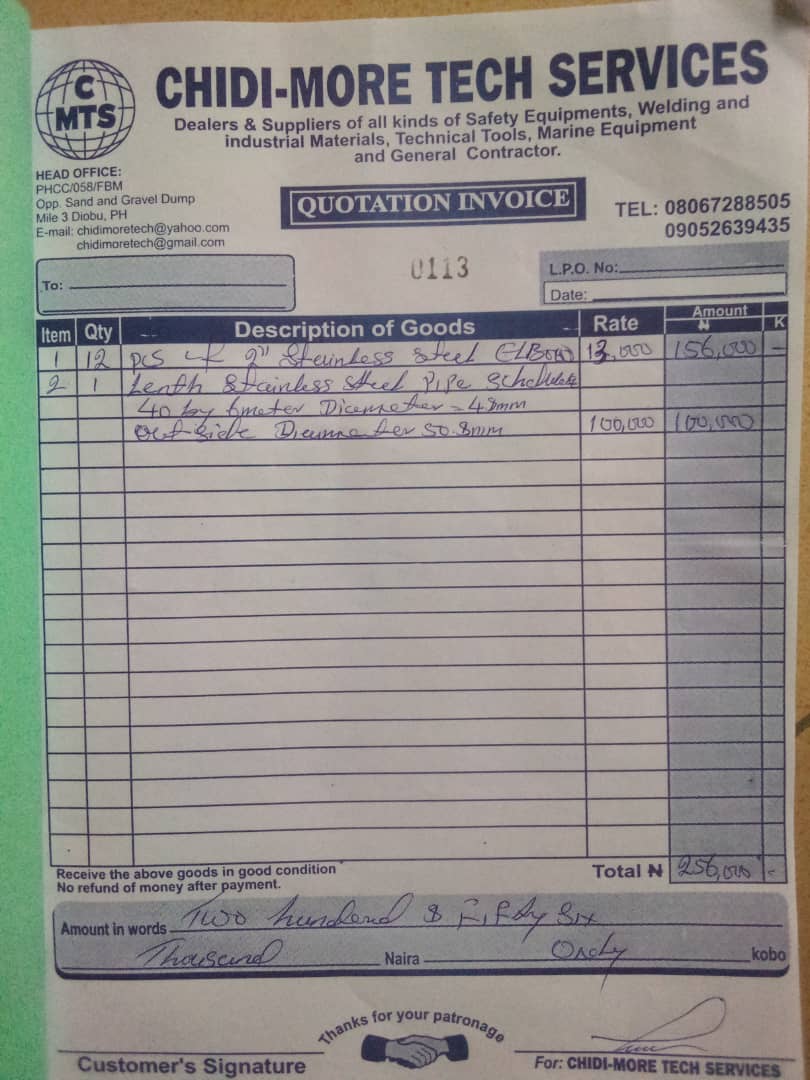 C
MTS
CHIDI-MORE TECH SERVICES
Dealers & Suppliers of all kinds of Safety Equipments, Welding and
industrial Materials, Technical Tools, Marine Equipment
and General Contractor.
HEAD OFFICE:
PHCC/058/FBM
Opp. Sand and Gravel Dump
Mile 3 Diobu, PH
E-mail: chidimoretech@yahoo.com
chidimoretech@gmail.com
QUOTATION INVOICE
TEL: 08067288505
09052639435
To:
0113
L.P.O. No:
Date:
Item Qty Description of Goods Rate Amount ₦ K
1 12 pcs of 2" Stainless Steel 13,000 156,000 -
2 1 Lenth Stainless Steel Pipe Schedule
40 by 6meter Diameter = 48mm
Outside Diameter 50.8mm 100,000 100,000
Receive the above goods in good condition
No refund of money after payment.
Total ₦ 256,000 -
Amount in words Two hundred & Fifty Six
Thousand Naira Only kobo
Thanks for your patronage
Customer's Signature
For: CHIDI-MORE TECH SERVICES